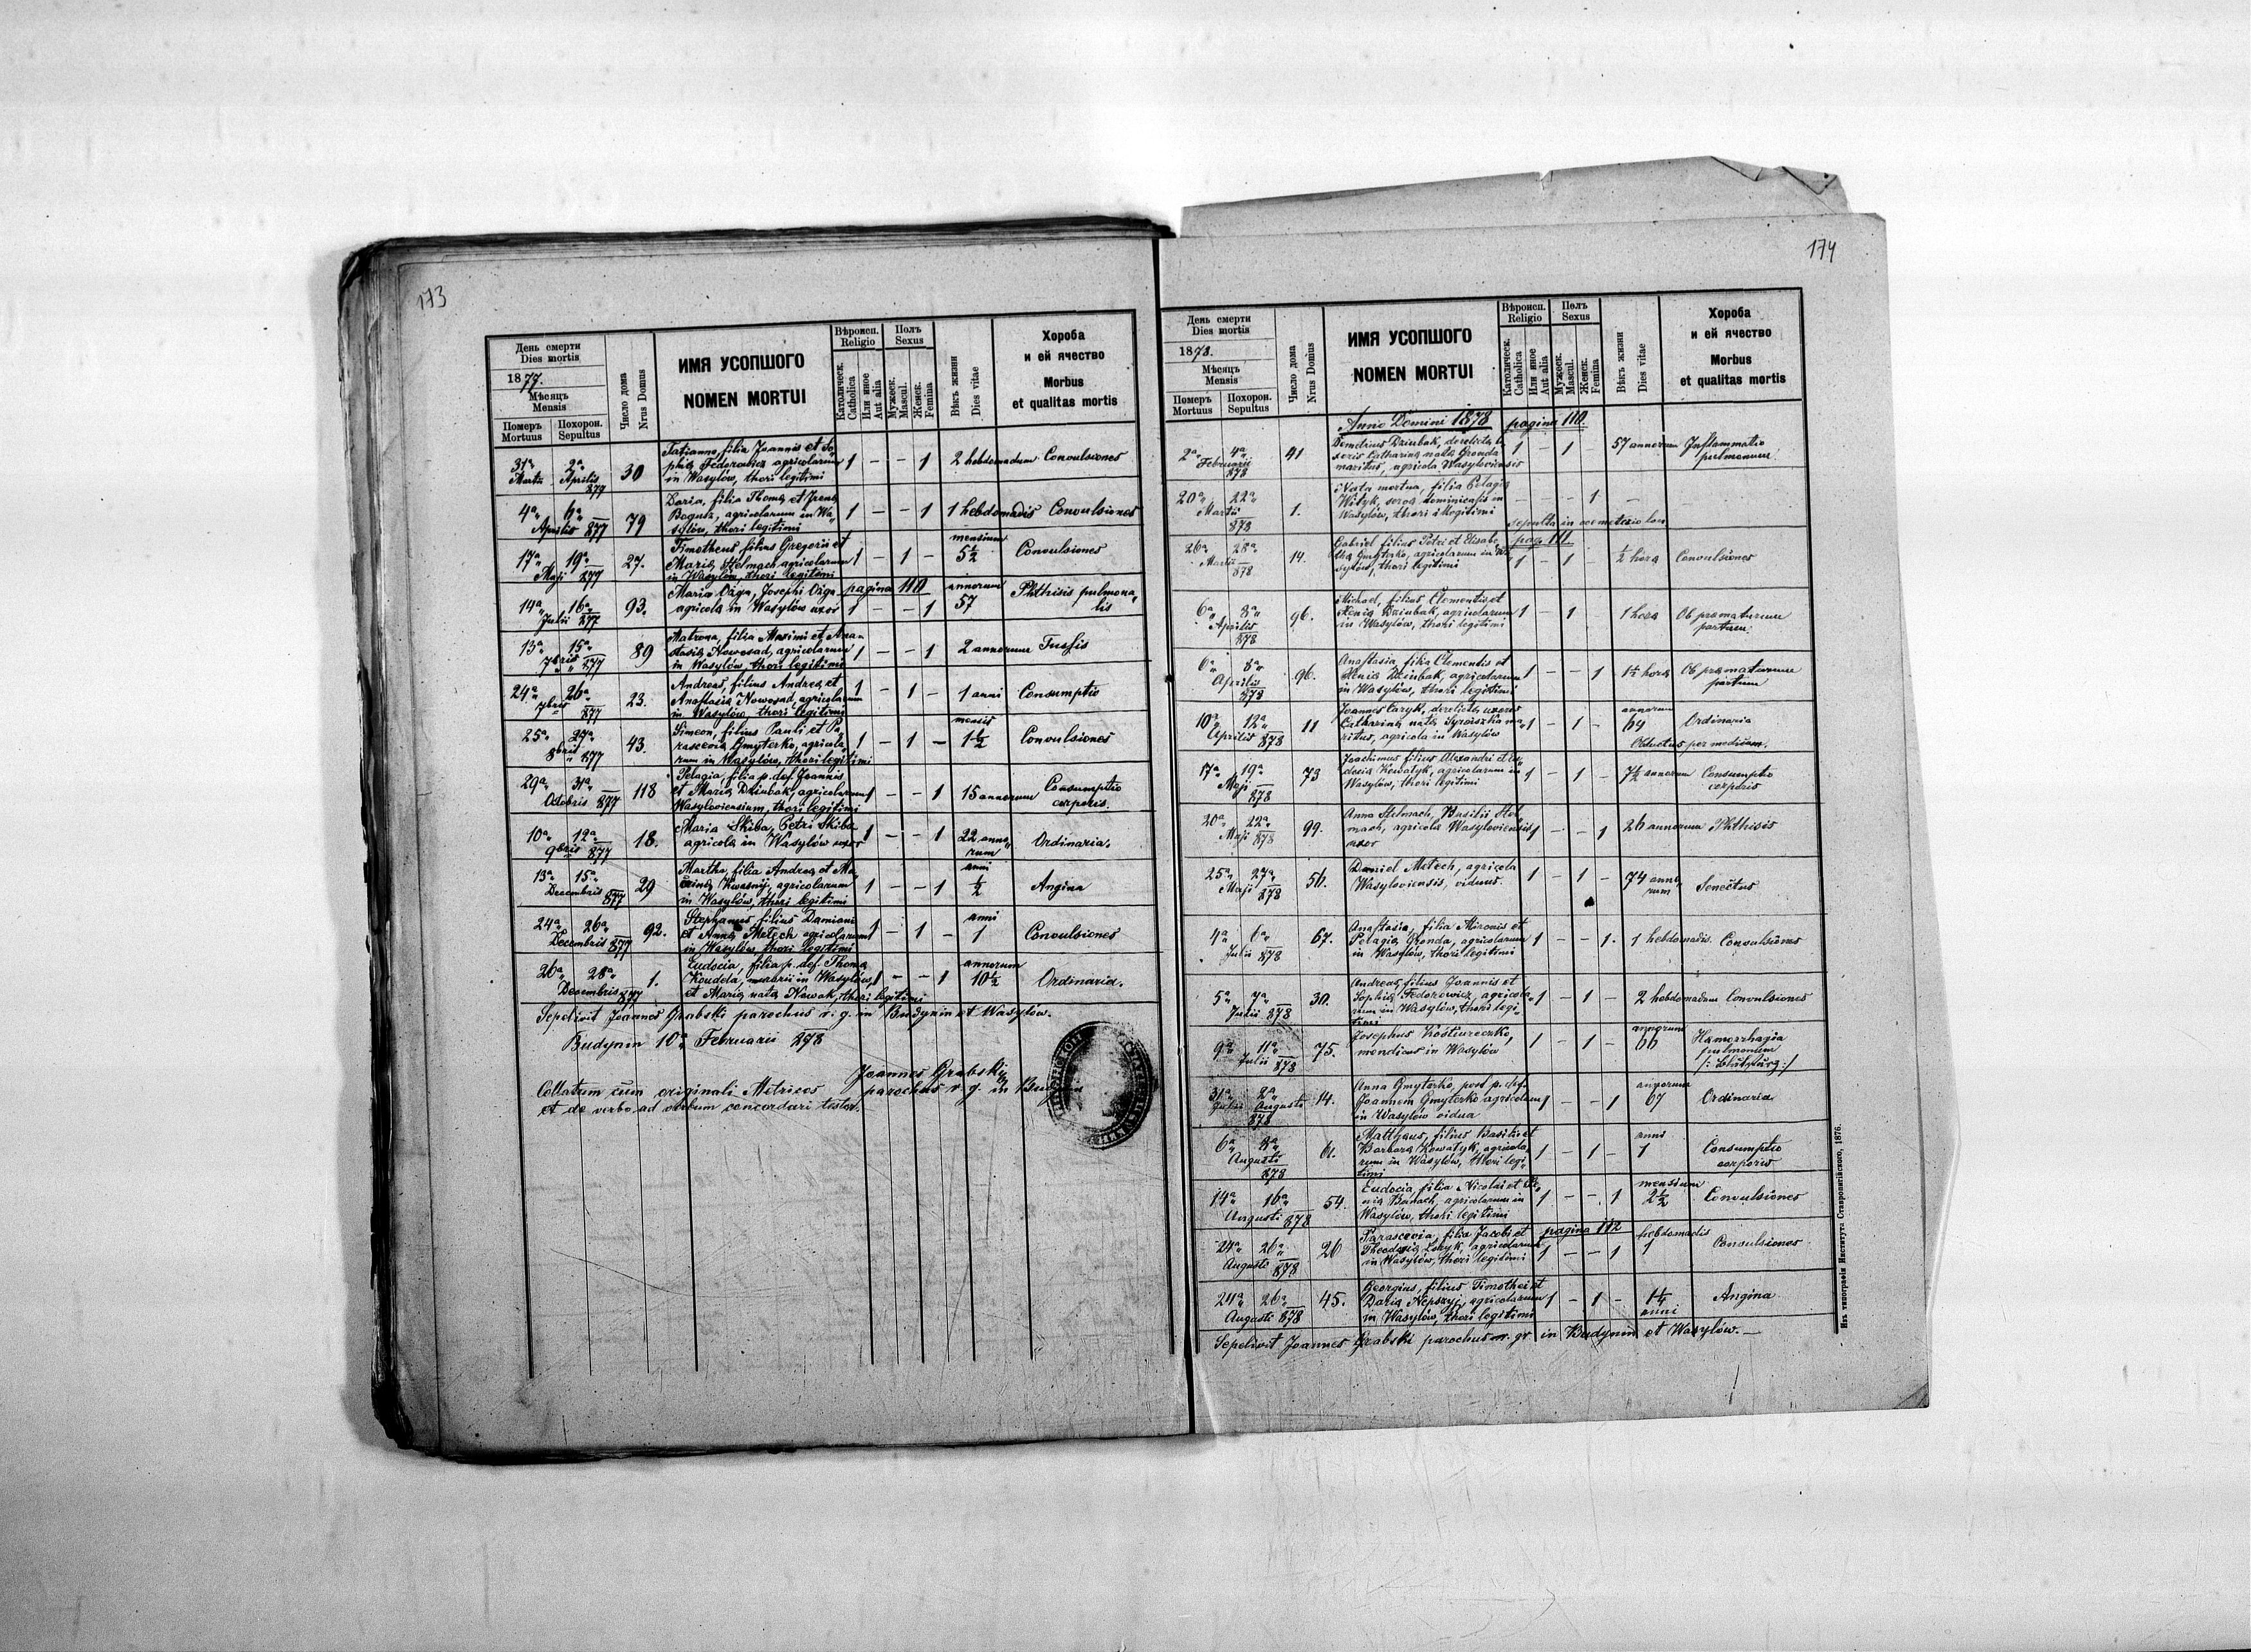 173
День смерти
Dies mortis
1877.
Мѣсяцъ
Mensis
Померъ Похорон.
Mortuus Sepultus
Число дома
Nrus Domus
ИМЯ УСОПШОГО
NOMEN MORTUI
Вѣроисп.
Religio
Католическ.
Catholica
Или иное
Aut alia
Полъ
Sexus
Мужеск.
Mascul.
Женск.
Femina
Вѣкъ жизни
Dies vitae
Хороба
и ей ячество
Morbus
et qualitas mortis
31a 2a Martii Aprilis 877 30 Tatianna, filia Joannis et So-
phia Fedorowicz agricolarum 1 – – 1 2 hebdomadum Convulsiones
in Wasylów, thori legitimi
4a 6a Aprilis 877 79 Daria, filia Thoma et Irena
Bogusz, agricolarum in Wa- 1 – – 1 1 hebdomadis Convulsiones
sylów, thori legitimi
17a 19a Maji 877 27. Timotheus filius Gregorii et
Maria Stelmach agricolarum 1 – 1 – mensium 5½ Convulsiones
in Wasylów, thori legitimi
pagina 110
14a 16a Julii 877 93. Maria Ozga, Josephi Ozga
agricola in Wasylów uxor 1 – – 1 annorum 57 Phthisis pulmona-
lis
13a 15a 7bris 877 89 Matrona, filia Maximi et Ana-
stasia Nowosad, agricolarum 1 – – 1 2 annorum Tussis
in Wasylów, thori legitimi
24a 26a 7bris 877 23. Andreas, filius Andrea et
Anastasia Nowosad, agricolarum 1 – 1 – 1 anni Consumptio
in Wasylów, thori legitimi
25a 27a 8bris 877 43. Simeon, filius Pauli et Pa-
rascevia Gmyterko, agricola- 1 – 1 – mensis 1½ Convulsiones
rum in Wasylów, thori legitimi
29a 31a Octobris 877 118 Pelagia, filia p. def. Joannis
et Maria Dziubak, agricolarum 1 – – 1 15 annorum Consumptio
Wasyloviensium, thori legitimi corporis.
10a 12a 9bris 877 18. Maria Skiba, Petri Skiba
agricola in Wasylów uxor 1 – – 1 22 anno-
rum Ordinaria.
13a 15a Decembris 877 29 Martha, filia Andrea et Ma-
rina Kwasnij, agricolarum 1 – – 1 anni ½ Angina
in Wasylów, thori legitimi
24a 26a Decembris 877 92. Stephanus, filius Damiani
et Anna Metech agricolarum 1 – 1 – anni 1 Convulsiones
in Wasylów, thori legitimi
26a 28a Decembris 877 1. Eudocia, filia p. def. Thoma
in Wasylów, 1 – – 1 annorum 10½ Ordinaria.
et Maria nata Nowak, thori legitimi
Sepelivit Joannes Grabski parochus r. g. in Budynin et Wasylów.
Budynin 10a Februarii 878
Joannes Grabski
parochus r. g. in Budynin
Collatum cum originali Metrices
et de verbo ad verbum concordari testor.
174
День смерти
Dies mortis
1878.
Мѣсяцъ
Mensis
Померъ Похорон.
Mortuus Sepultus
Число дома
Nrus Domus
ИМЯ УСОПШОГО
NOMEN MORTUI
Вѣроисп.
Religio
Католическ.
Catholica
Или иное
Aut alia
Полъ
Sexus
Мужеск.
Mascul.
Женск.
Femina
Вѣкъ жизни
Dies vitae
Хороба
и ей ячество
Morbus
et qualitas mortis
Anno Domini 1878 pagina 110.
2a 4a Februarii 878 41 Demetrius Dziubak, derelicta u-
xoris Catharina nata Gronda 1 – 1 – 57 annorum Inflammatio
maritus, agricola Wasyloviensis pulmonum.
20a 22a Martii 878 1. Nata mortua, filia Pelagia
Wityk, serva dominicalis in – – – 1 –
Wasylów, thori illegitimi
sepulta in coemeterio loci
pag. 111
26a 28a Martii 878 14. Gabriel filius Petri et Elisabe-
tha Gmyterko, agricolarum in Wa- 1 – 1 – ½ hora Convulsiones
sylów, thori legitimi
6a 8a Aprilis 878 96. Michael, filius Clementis et
Xenia Dziubak, agricolarum 1 – 1 – 1 hora Ob prematurum
in Wasylów, thori legitimi partum.
6a 8a Aprilis 878 96. Anastasia, filia Clementis et
Xenia Dziubak, agricolarum 1 – – 1 1½ hora Ob prematurum
in Wasylów, thori legitimi partum
10a 12a Aprilis 878 11 Joannes Caryk, derelicta uxoris
Catharina nata ma- 1 – 1 – annorum 64 Ordinaria
ritus, agricola in Wasylów
Obductus per medicum.
17a 19a Maji 878 73 Joachimus filius Alexandri et Eu-
docia Kowalyk, agricolarum in 1 – 1 – 7½ annorum Consumptio
Wasylów, thori legitimi corporis
20a 22a Maji 878 99. Anna Stelmach, Basilii Stel-
mach, agricola Wasyloviensis 1 – – 1 26 annorum Phthisis
uxor
25a 27a Maji 878 56. Daniel Metech, agricola
Wasyloviensis, viduus. 1 – 1 – 74 anno-
rum Senectus
4a 6a Julii 878 67. Anastasia, filia Mironis et
Pelagia Gronda, agricolarum 1 – – 1. 1 hebdomadis. Convulsiones
in Wasylów, thori legitimi
5a 7a Julii 878 30. Andreas, filius Joannis et
Sophia Fedorowicz, agricola- 1 – 1 – 2 hebdomadum Convulsiones
rum in Wasylów, thori legi-
timi
9a 11a Julii 878 75. Josephus Kostiureczko,
mendicus in Wasylów 1 – 1 – annorum 66 Hæmorrhagia
pulmonum
31a 2a Julii Augusti 878 14. Anna Gmyterko, post p. def.
Joannem Gmyterko agricolam 1 – – 1 annorum 67 Ordinaria
in Wasylów vidua
6a 8a Augusti 878 61. Matthæus, filius Basilii et
Barbara Kowalyk, agricola- 1 – 1 – anni 1 Consumptio
rum in Wasylów, thori legi- corporis
timi
14a 16a Augusti 878 54. Eudocia, filia Nicolai et Xe-
nia Banach, agricolarum in 1 – – 1 mensium 2½ Convulsiones
Wasylów, thori legitimi
pagina 112
24a 26a Augusti 878 26 Parascevia, filia Jacobi et
Theodosia agricolarum 1 – – 1 hebdomadis 1 Convulsiones
in Wasylów, thori legitimi
24a 26a Augusti 878 45. Georgius, filius Timothei et
Daria Nepszyj, agricolarum 1 – 1 – 1¼ anni Angina
in Wasylów, thori legitimi
Sepelivit Joannes Grabski parochus r. gr. in Budynin et Wasylów.
Изъ типографіи Института Ставропигійского, 1876.